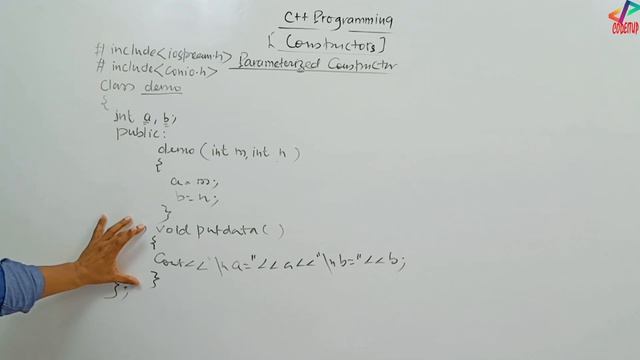 C++ Programming
[Constructors]
CODEITUP
# include<iostream.h>
# include<conio.h>
Parameterized Constructor
Class demo
{
int a, b;
public:
demo(int m, int n)
{
a=m;
b=n;
}
void putdata()
{
Cout<<"\n a="<<a<<"\n b="<<b;
}
};